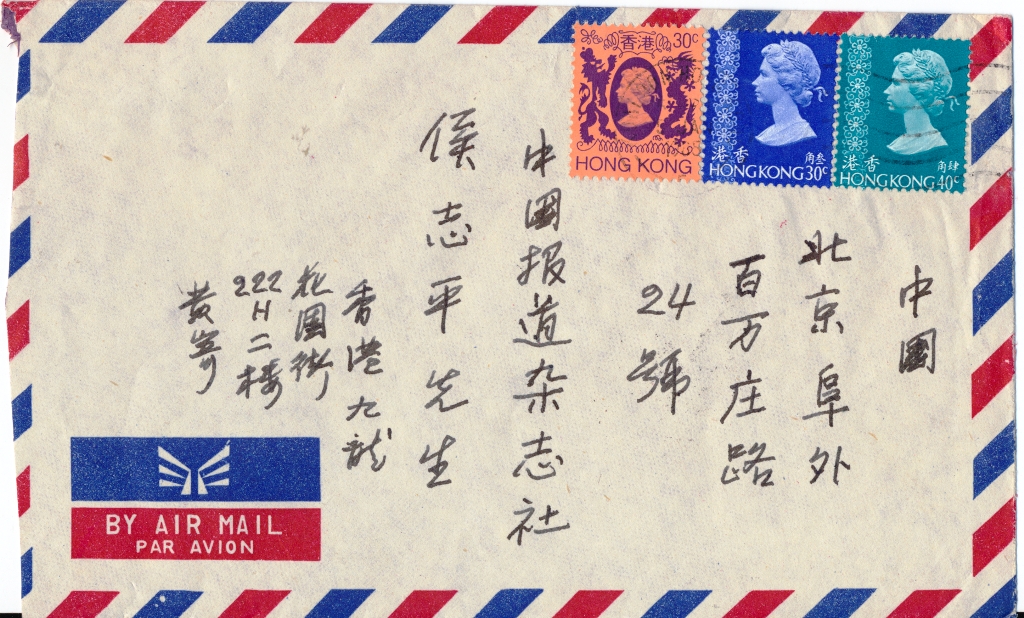 香港 30c
HONG KONG
香港
角叁
HONG KONG 30c
香港
角肆
HONG KONG 40c
中國
北京阜外
百万庄路
24號
中國报道杂志社
侯志平先生
香港九龍
花園街
222H二楼
黄寄
BY AIR MAIL
PAR AVION